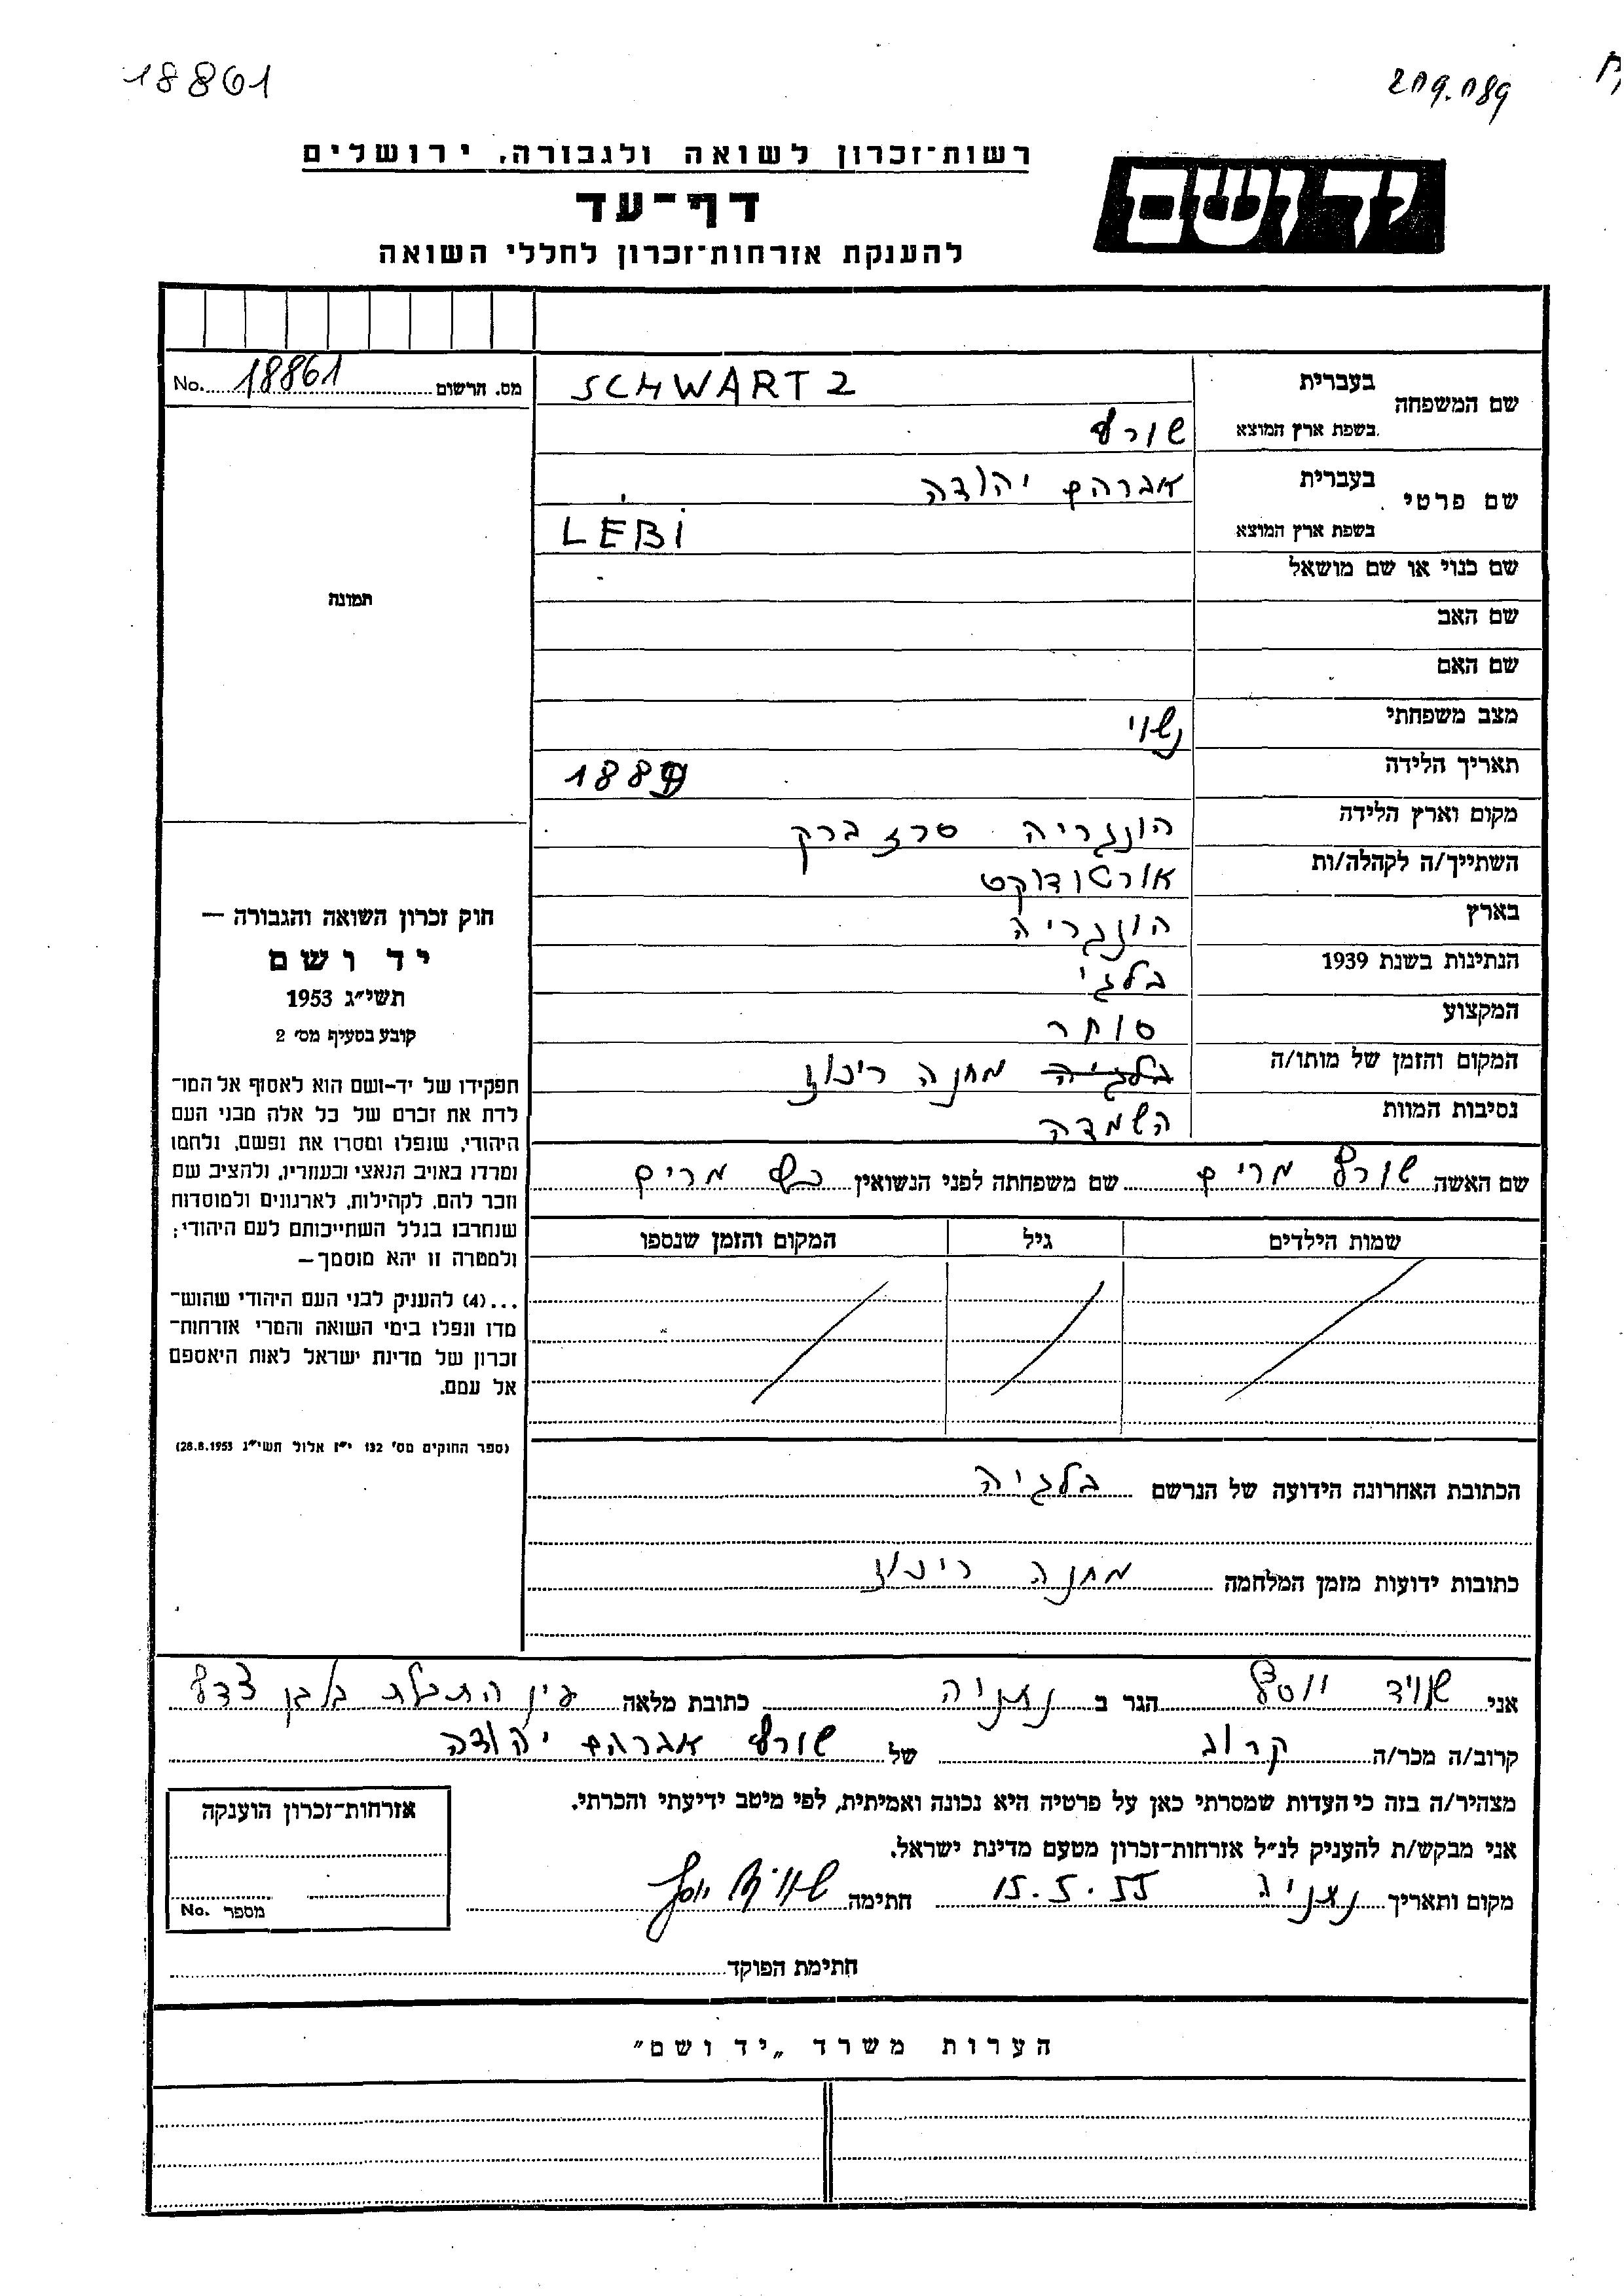 18861
209.089
רשות־זכרון לשואה ולגבורה, ירושלים
יד ושם
דף־עד
להענקת אזרחות־זכרון לחללי השואה
מס. הרשום 18861 No.
שם המשפחה בעברית SCHWARTZ
בשפת ארץ המוצא שורץ
שם פרטי בעברית אברהם יהודה
בשפת ארץ המוצא LEBI
שם כנוי או שם מושאל
תמונה
שם האב
שם האם
מצב משפחתי נשוי
תאריך הלידה
מקום וארץ הלידה הונגריה
השתייך/ה לקהלה/ות אורטודוקט
בארץ הונגריה
הנתינות בשנת 1939 בלגי
המקצוע סוחר
המקום והזמן של מותו/ה בלגיה מחנה
נסיבות המוות השמדה
חוק זכרון השואה והגבורה —
יד ושם
תשי״ג 1953
קובע בסעיף מס׳ 2
תפקידו של יד-ושם הוא לאסוף אל המו־
לדת את זכרם של כל אלה מבני העם
היהודי, שנפלו ומסרו את נפשם, נלחמו
ומרדו באויב הנאצי ובעוזריו, ולהציב שם
וזכר להם, לקהילות, לארגונים ולמוסדות
שנחרבו בגלל השתייכותם לעם היהודי;
ולמטרה זו יהא מוסמך —
...(4) להעניק לבני העם היהודי שהוש־
מדו ונפלו בימי השואה והמרי אזרחות־
זכרון של מדינת ישראל לאות היאספם
אל עמם.
(ספר החוקים מס׳ 132 י״ז אלול תשי״ג 28.8.1953)
שם האשה שורץ מרים שם משפחתה לפני הנשואין מרים
שמות הילדים גיל המקום והזמן שנספו
הכתובת האחרונה הידועה של הנרשם בלגיה
כתובות ידועות מזמן המלחמה מחנה
אני יוסף הגר ב נתניה כתובת מלאה עין התכלת
קרוב/ה מכר/ה קרוב של שורץ אברהם יהודה
מצהיר/ה בזה כי העדות שמסרתי כאן על פרטיה היא נכונה ואמיתית, לפי מיטב ידיעתי והכרתי.
אני מבקש/ת להעניק לנ״ל אזרחות־זכרון מטעם מדינת ישראל.
מקום ותאריך 15.5.55 חתימה יוסף
אזרחות־זכרון הוענקה
מספר No.
חתימת הפוקד
הערות משרד „יד ושם״